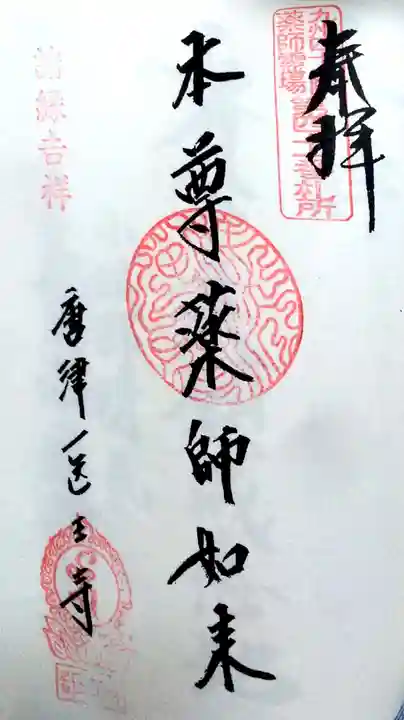 奉拝
九州四十九院
薬師霊場第四十二番札所
本尊薬師如来
諸縁吉祥
唐津 医王寺